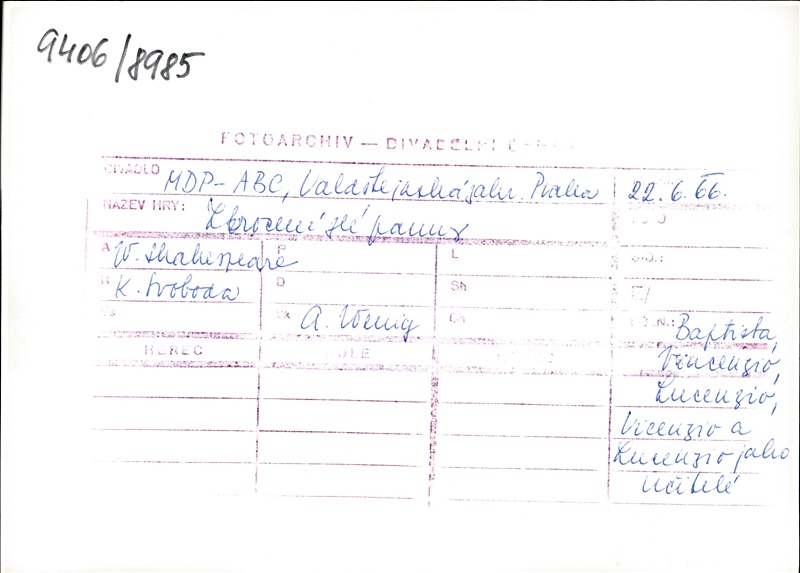 9406/8985
FOTOARCHIV — DIVADELNÍ
DIVADLO MDP-ABC, Valdštejnská zahr. Praha 22.6.66.
NÁZEV HRY: Zkrocení zlé panny
A W. Shakespeare P L
R K. Svoboda D Sh
Vk A. Wenig
HEREC
Baptista,
Vincenzio,
Lucenzio,
Vicenzio a
Lucenzio jako
učitelé